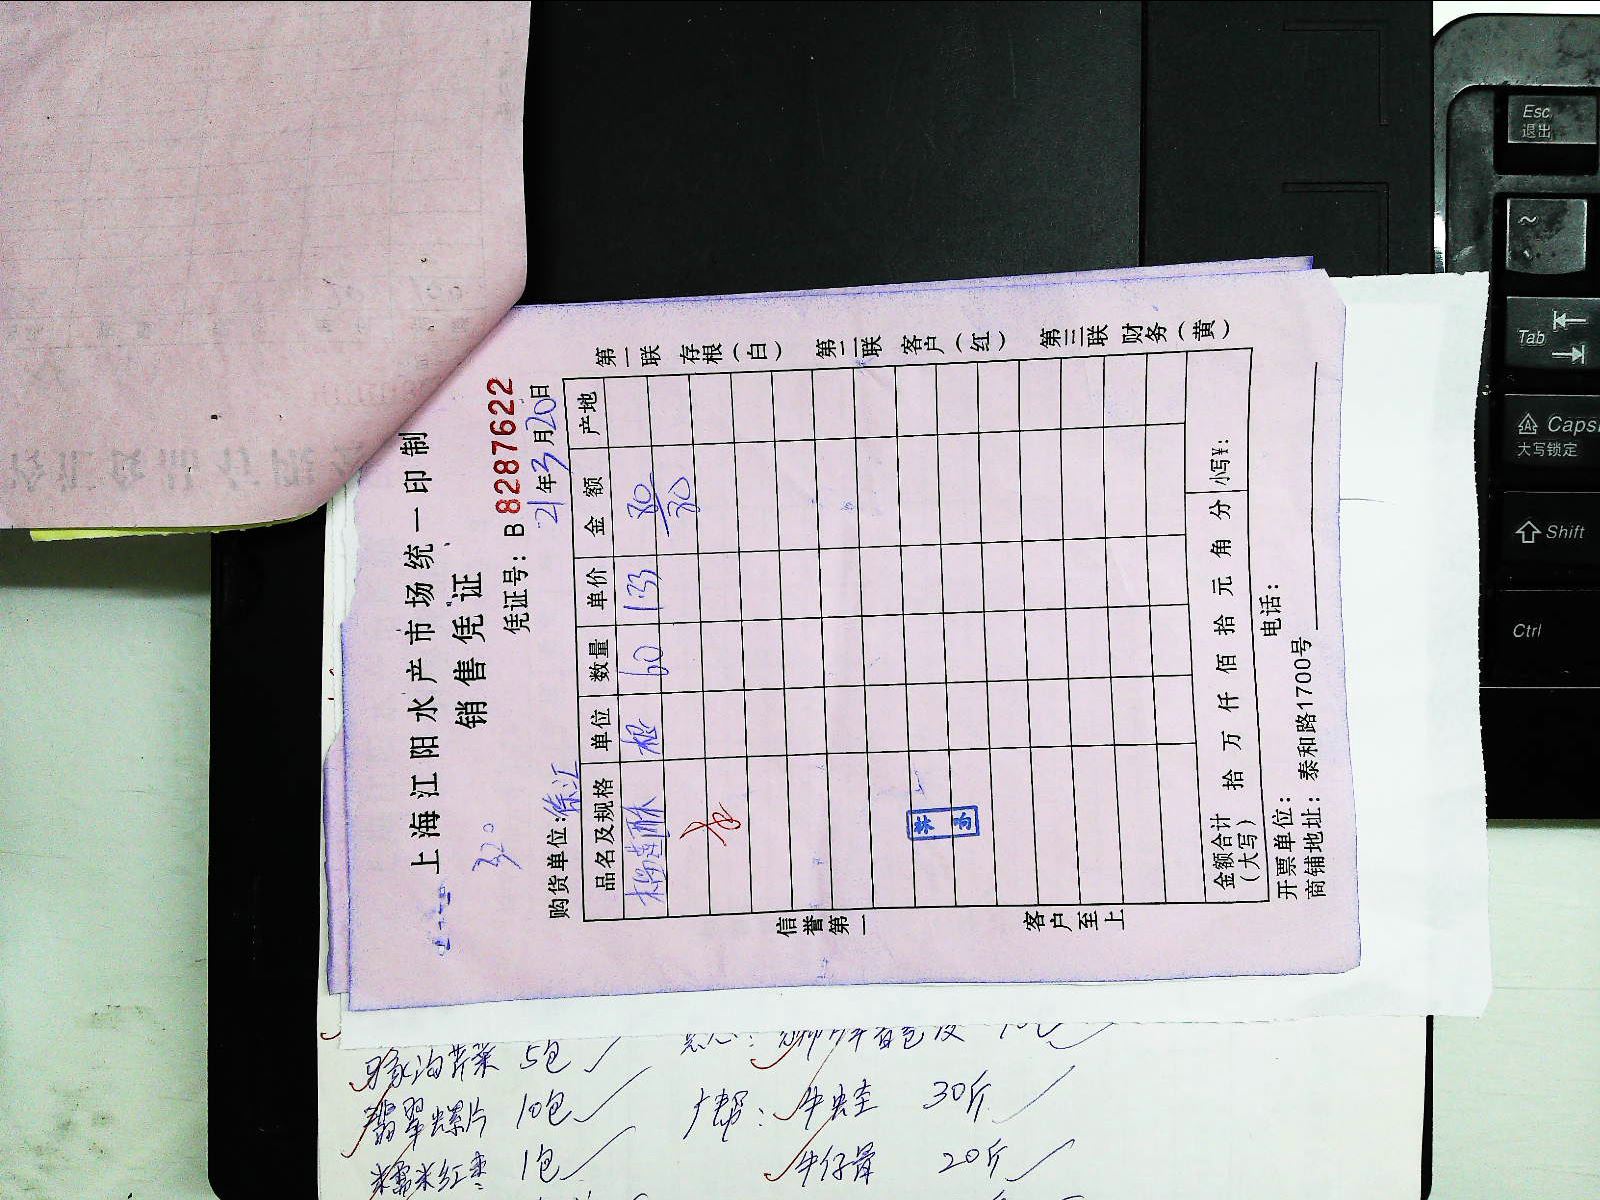 上海江阳水产市场统一印制
销售凭证
320
凭证号：B 8287622
购货单位：徐汇
21年3月20日
品名及规格 单位 数量 单价 金额 产地
根 60 133 80
80
金额合计（大写） 拾 万 仟 佰 拾 元 角 分 小写¥：
开票单位： 电话：
商铺地址： 泰和路1700号
信誉第一 客户至上
第一联 存根（白） 第二联 客户（红） 第三联 财务（黄）
5包
翡翠螺片 10包
糯米红枣 1包
牛蛙 30斤
牛仔骨 20斤
Esc
退出
~
Tab
Caps
大写锁定
Shift
Ctrl